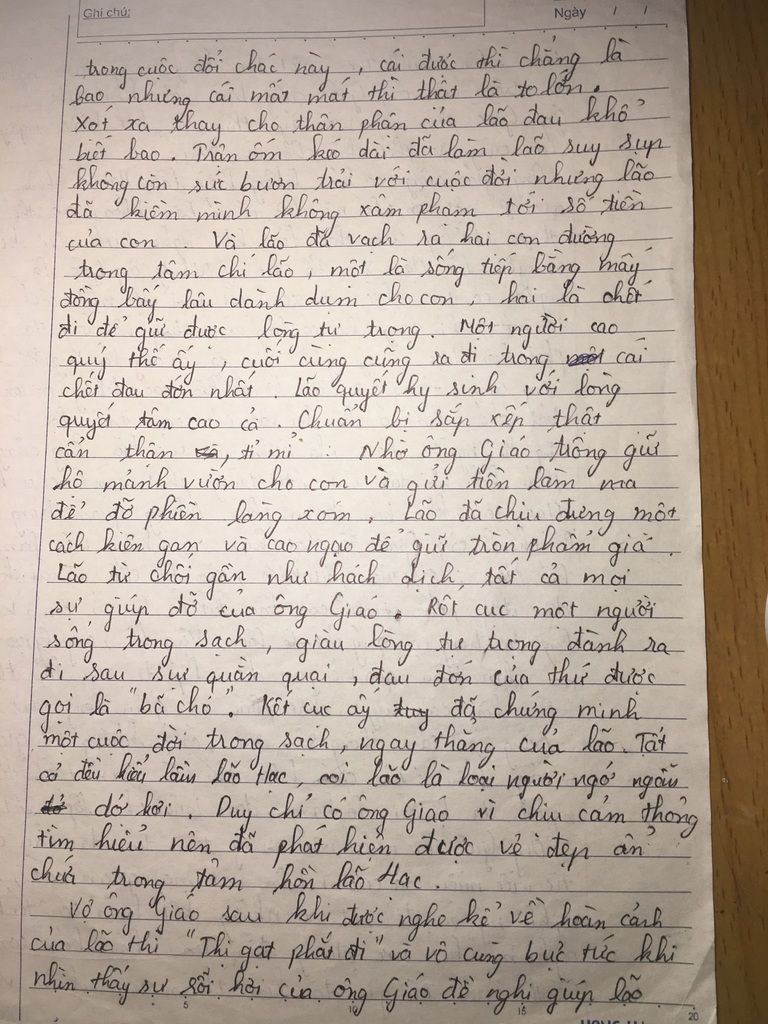 Ghi chú:
Ngày / /
trong cuộc đổi chác này, cái được thì chẳng là
bao nhưng cái mất mát thì thật là to lớn.
Xót xa thay cho thân phận của lão đau khổ
biết bao. Trận ốm kéo dài đã làm lão suy sụp
không còn sức bươn trải với cuộc đời nhưng lão
đã kiềm mình không xâm phạm tới số tiền
của con. Và lão đã vạch ra hai con đường
trong tâm chí lão, một là sống tiếp bằng mấy
đồng bấy lâu dành dụm cho con, hai là chết
đi để giữ được lòng tự trọng. Một người cao
quý thế ấy, cuối cùng cũng ra đi trong cái
chết đau đớn nhất. Lão quyết hy sinh với lòng
quyết tâm cao cả. Chuẩn bị sắp xếp thật
cẩn thận, tỉ mỉ: Nhờ ông Giáo trông giữ
hộ mảnh vườn cho con và gửi tiền làm ma
để đỡ phiền làng xóm. Lão đã chịu đựng một
cách kiên gan và cao ngạo để giữ tròn phẩm giá.
Lão từ chối gần như hách dịch, tất cả mọi
sự giúp đỡ của ông Giáo. Rốt cục một người
sống trong sạch, giàu lòng tự trọng đành ra
đi sau sự quằn quại, đau đớn của thứ được
gọi là "bã chó". Kết cục ấy đã chứng minh
một cuộc đời trong sạch, ngay thẳng của lão. Tất
cả đều hiểu lầm lão Hạc, coi lão là loại người ngớ ngẩn
dở hơi. Duy chỉ có ông Giáo vì chịu cảm thông
tìm hiểu nên đã phát hiện được vẻ đẹp ẩn
chứa trong tâm hồn lão Hạc.
Vợ ông Giáo sau khi được nghe kể về hoàn cảnh
của lão thì "Thị gạt phắt đi" và vô cùng bực tức khi
nhìn thấy sự sởi hởi của ông Giáo đề nghị giúp lão
5 10 15 20